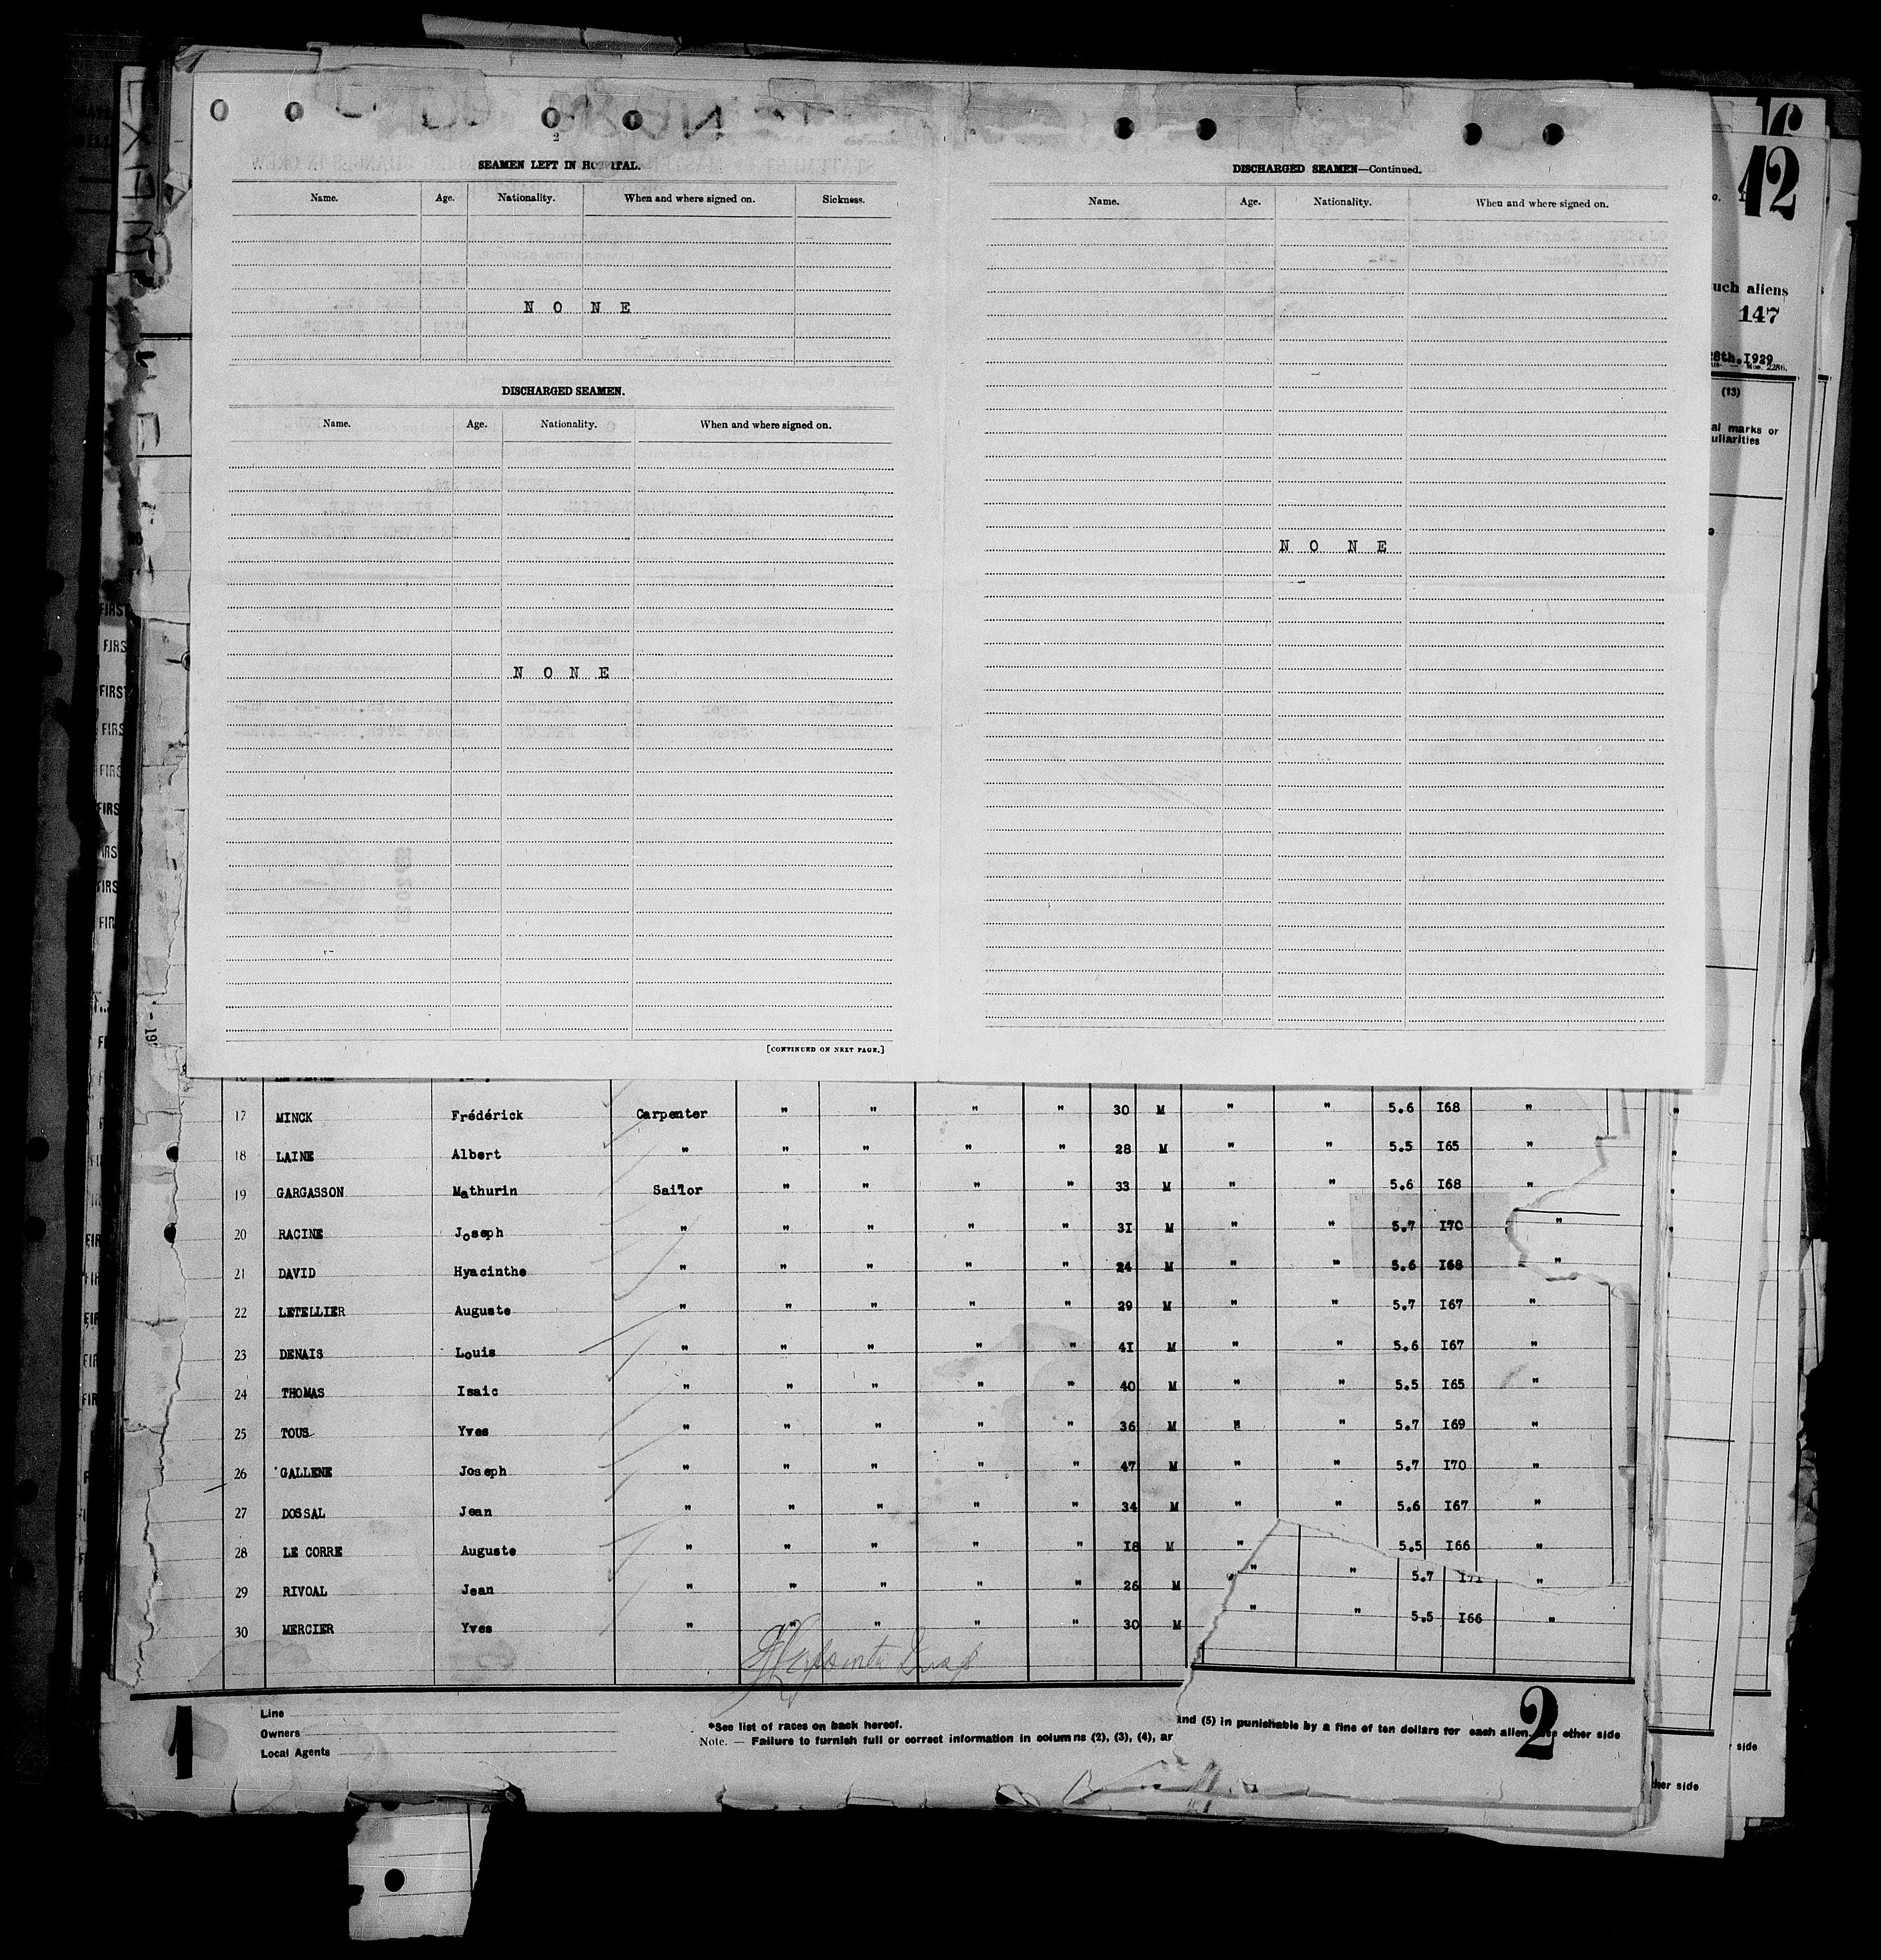 2
SEAMEN LEFT IN HOSPITAL.
Name. Age. Nationality. When and where signed on. Sickness.
N O N E
DISCHARGED SEAMEN.
Name. Age. Nationality. When and where signed on.
N O N E
[CONTINUED ON NEXT PAGE.]
DISCHARGED SEAMEN—Continued.
Name. Age. Nationality. When and where signed on.
N O N E
12
uch aliens
147
28th.I929
2286.
(13)
al marks or
uliarities
FIRST
FIRS
FIRST
FIRS
FIRS
FIRS
17 MINCK Frédérick Carpenter " " " " 30 M " " 5.6 I68 "
18 LAINE Albert " " " " " 28 M " " 5.5 I65 "
19 GARGASSON Mathurin Sailor " " " " 33 M " " 5.6 I68 "
20 RACINE Joseph " " " " " 3I M " " 5.7 I70 "
21 DAVID Hyacinthe " " " " " 24 M " " 5.6 I68 "
22 LETELLIER Auguste " " " " " 29 M " " 5.7 I67 "
23 DENAIS Louis " " " " " 4I M " " 5.6 I67 "
24 THOMAS Isaic " " " " " 40 M " " 5.5 I65 "
25 TOUS Yves " " " " " 36 M " " 5.7 I69 "
26 GALLENE Joseph " " " " " 47 M " " 5.7 I70 "
27 DOSSAL Jean " " " " " 34 M " " 5.6 I67 "
28 LE CORRE Auguste " " " " " I8 M " 5.5 I66 "
29 RIVOAL Jean " " " " " 26 M " " 5.7 I71 "
30 MERCIER Yves " " " " " 30 M " " 5.5 I66 "
1
Line
Owners
Local Agents
*See list of races on back hereof.
Note. — Failure to furnish full or correct information in columns (2), (3), (4), ar
and (5) in punishable by a fine of ten dollars for each alien. See other side
2
side
her side